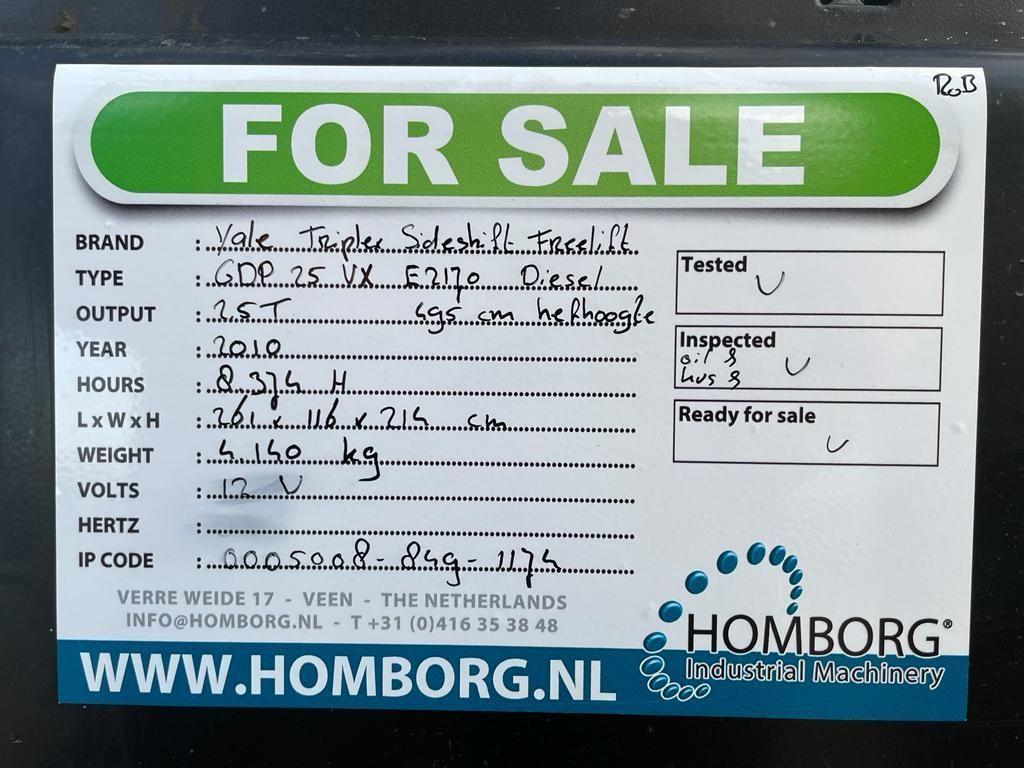 RoB
FOR SALE
BRAND : Yale Triplex Sideshift Freelift
TYPE : GDP 25 VX E2170 Diesel
OUTPUT : 2.5T 495 cm hefhoogte
YEAR : 2010
HOURS : 8.374 H
L x W x H : 261 x 116 x 214 cm
WEIGHT : 4.140 kg
VOLTS : 12 V
HERTZ :
IP CODE : 0005008-849-1174
Tested
Inspected
oil &
Ready for sale
VERRE WEIDE 17 - VEEN - THE NETHERLANDS
INFO@HOMBORG.NL - T +31 (0)416 35 38 48
WWW.HOMBORG.NL
HOMBORG®
Industrial Machinery